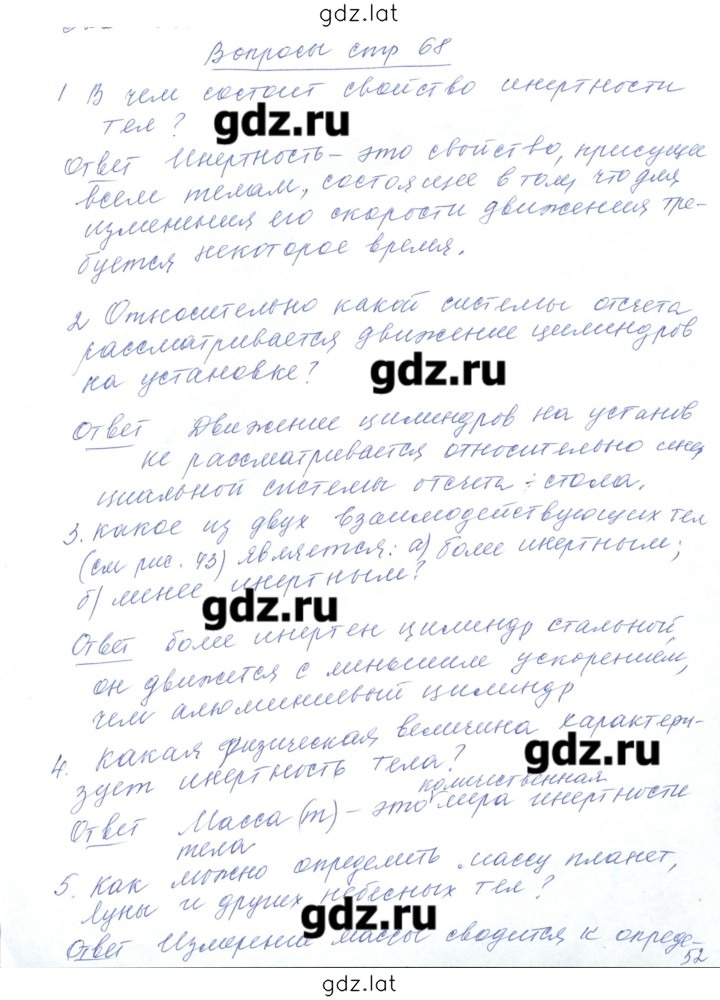 gdz.lat
Вопросы стр 68
1 В чем состоит свойство инертности
тел?
gdz.ru
Ответ Инертность – это свойство, присущее
всем телам, состоящее в том, что для
изменения его скорости движения тре-
буется некоторое время.
2 Относительно какой системы отсчета
рассматривается движение цилиндров
на установке?
gdz.ru
Ответ Движение цилиндров на установ
ке рассматривается относительно инер
циальной системы отсчета - стола.
3. Какое из двух взаимодействующих тел
(см рис. 43) является: а) более инертным;
б) менее инертным?
gdz.ru
Ответ более инертен цилиндр стальный,
он движется с меньшим ускорением,
чем алюминиевый цилиндр
4. Какая физическая величина характери-
зует инертность тела?
gdz.ru
количественная
Ответ Масса (m) – это мера инертности
тела
5. Как можно определить массу планет,
Луны и других небесных тел?
gdz.ru
Ответ Измерение массы сводится к опреде-
52
gdz.lat